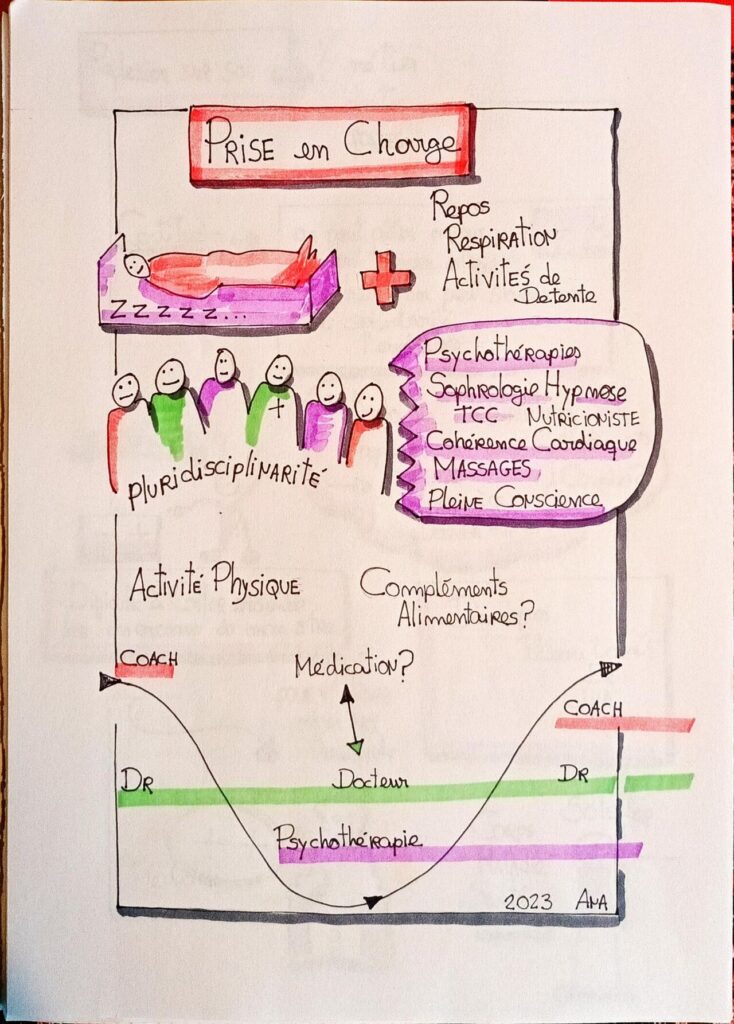 PRISE en Charge
Repos
RESPIRATION
Activités de
Detente
Zzzzz...
Psychothérapies
Sophrologie Hypnose
TCC NUTRICIONISTE
Cohérence Cardiaque
MASSAGES
Pleine Conscience
pluridisciplinarité
Activité Physique
Compléments
Alimentaires?
COACH
Médication?
COACH
DR
Docteur
DR
Psychothérapie
2023 ANA